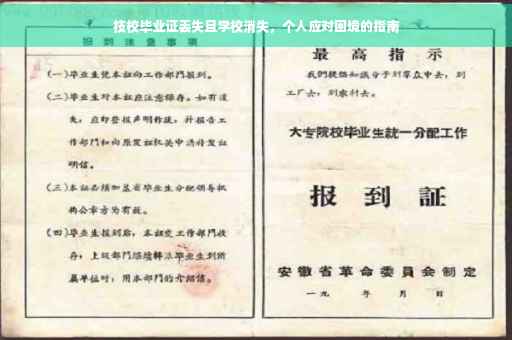 技校毕业证丢失且学校消失，个人应对困境的指南
报到注意事项
(一)毕业生凭本证向工作部门报到。
(二)毕业生对本证应注意保存。如有遗
失，应即登报声明作废，并报告工
作部门和向原发证机关申请补发证
明信。
(三)本证必须加盖省毕业生分配领导机
构公章方为有效。
(四)毕业生报到后，本证交工作部门收
存；上级部门
毕业生到所
属单位时，用本部门的介绍信。
最高指示
我们提倡知识分子到群众中去，到
工厂去，到农村去。
大专院校毕业生統一分配工作
报到証
安徽省革命委員会制定
一九 年 月 日